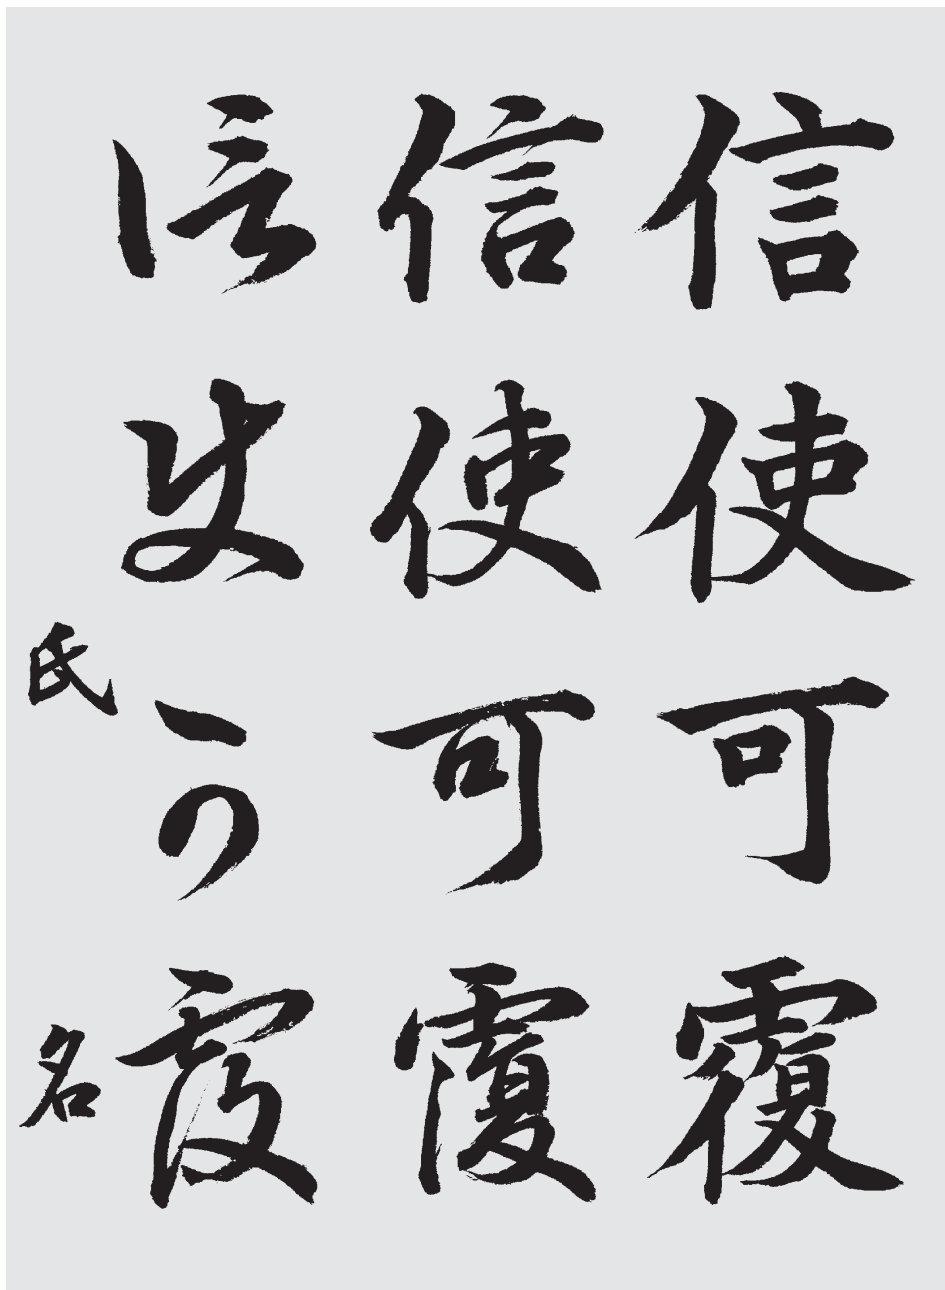 信使可覆
信使可覆
信使可覆
氏名